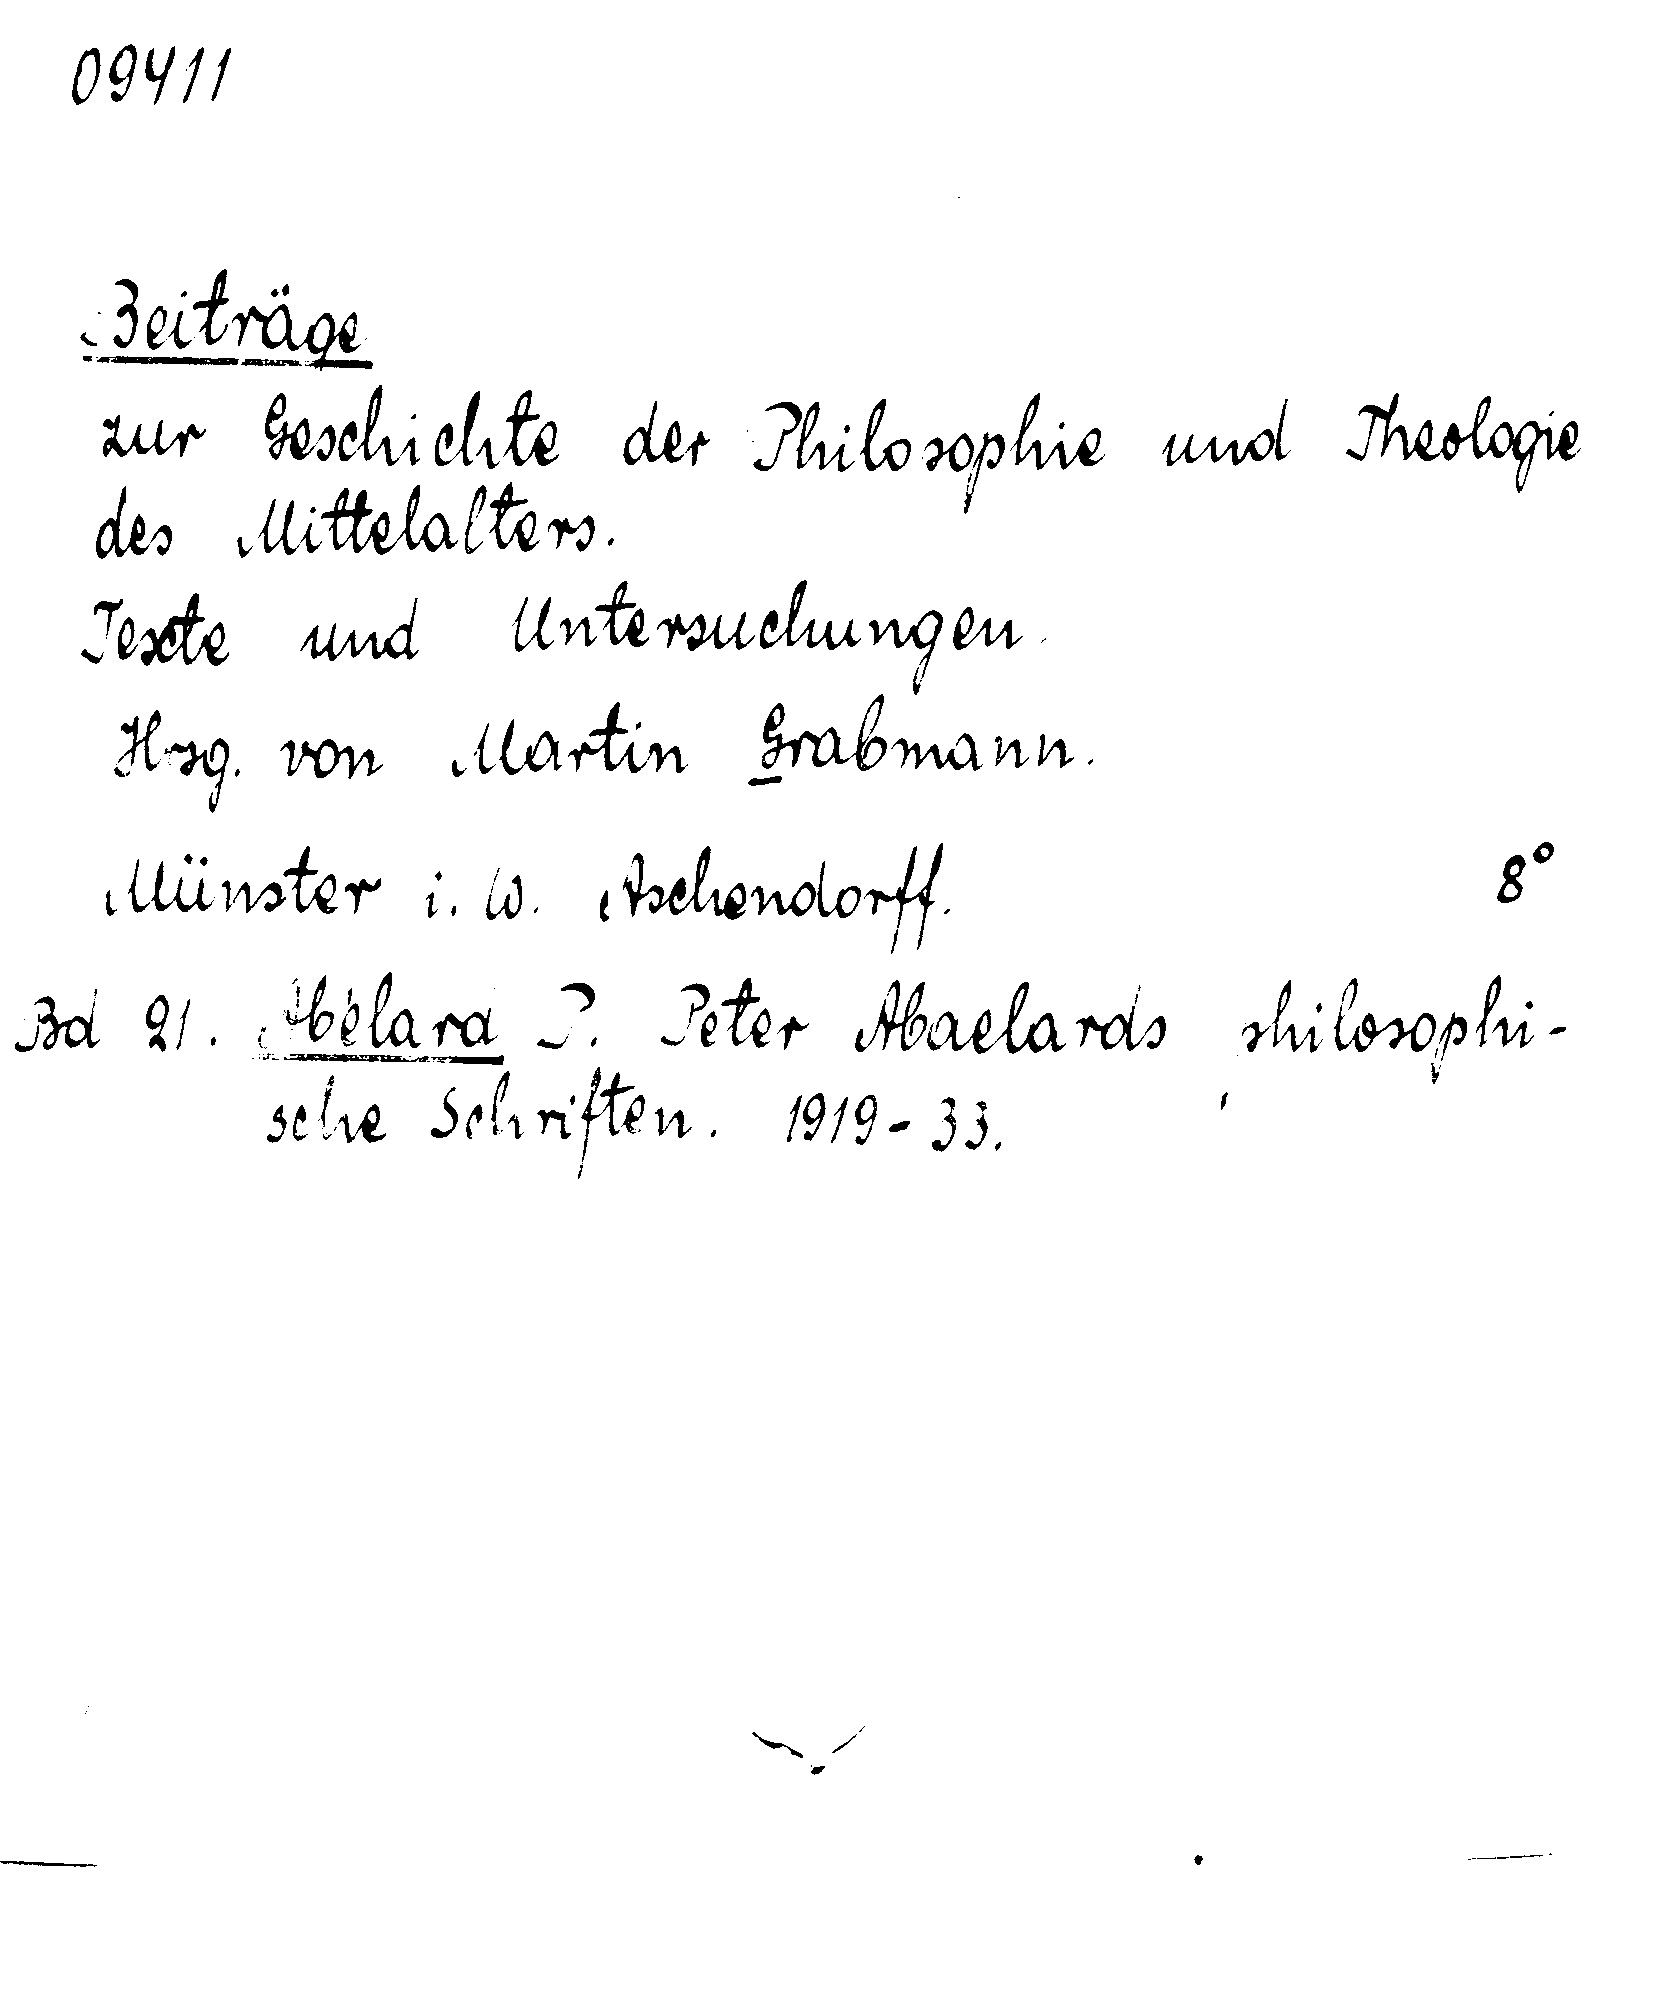 09411
Beiträge
zur Geschichte der Philosophie und Theologie
des Mittelalters.
Texte und Untersuchungen.
Hrsg. von Martin Grabmann.
Münster i. W. Aschendorff. 8°
Bd 21. Abélard P. Peter Abaelards philosophi-
sche Schriften. 1919-33.